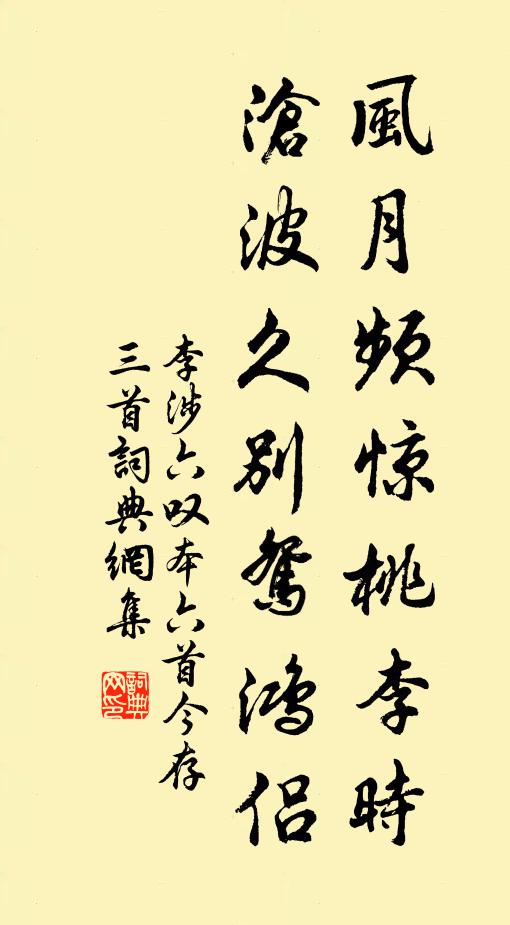 風月頻惊桃李時
滄波久別鴛鴻侣
李涉六叹本六首今存
三首詞典網集
詞典
网印